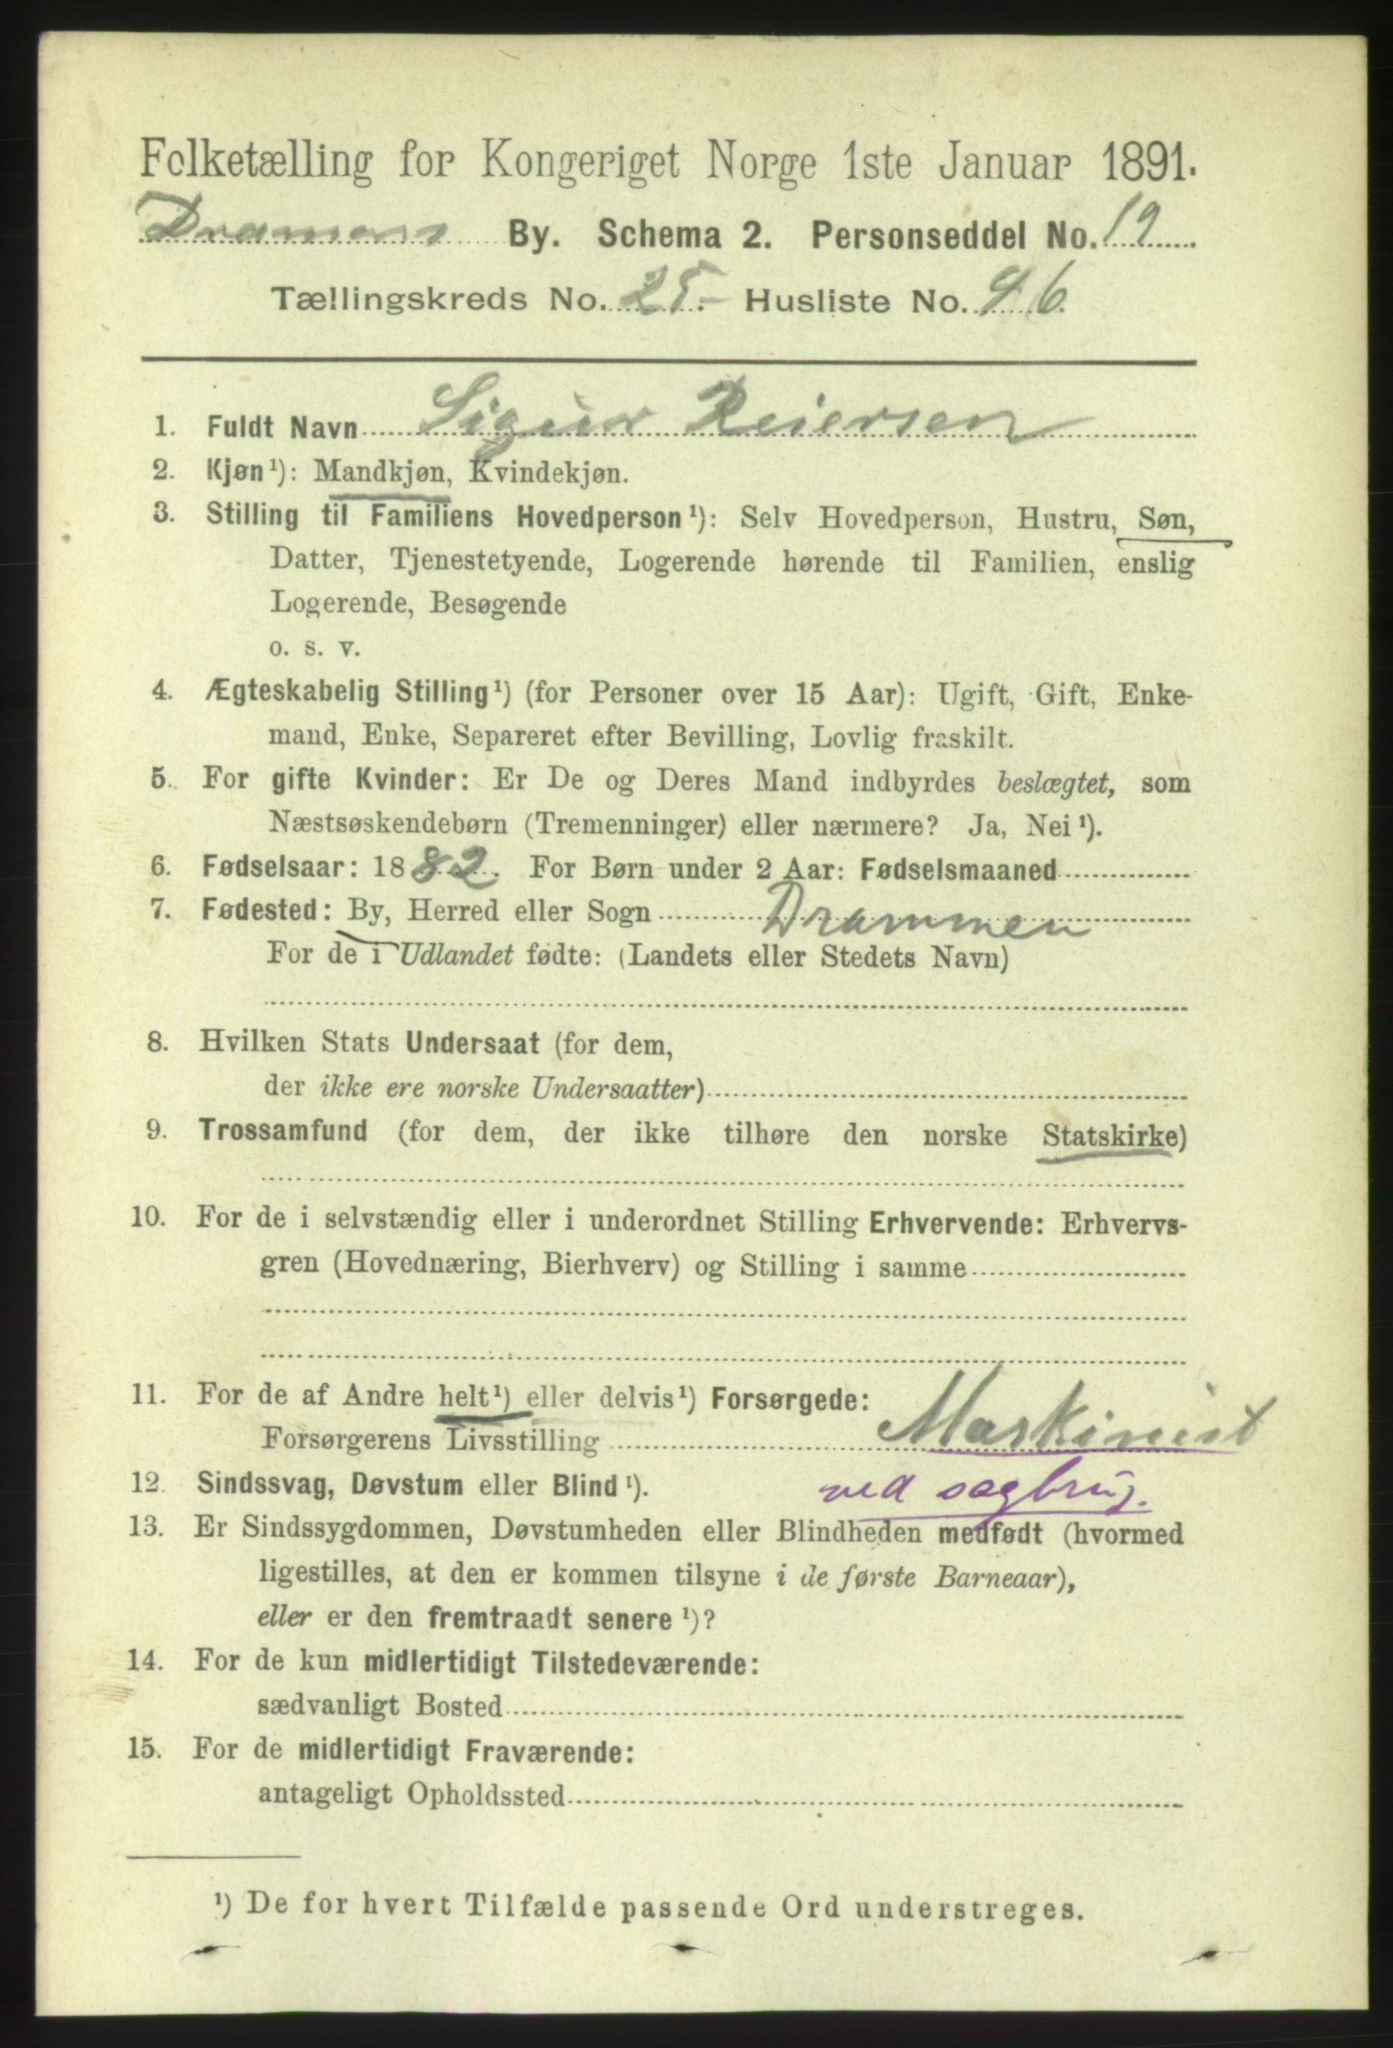 Folketælling for Kongeriget Norge 1ste Januar 1891.
Drammens By. Schema 2. Personseddel No. 19
Tællingskreds No. 25.- Husliste No. 46
1. Fuldt Navn Sigur Reiersen
2. Kjøn¹): Mandkjøn, Kvindekjøn.
3. Stilling til Familiens Hovedperson¹): Selv Hovedperson, Hustru, Søn,
Datter, Tjenestetyende, Logerende hørende til Familien, enslig
Logerende, Besøgende
o. s. v.
4. Ægteskabelig Stilling¹) (for Personer over 15 Aar): Ugift, Gift, Enke-
mand, Enke, Separeret efter Bevilling, Lovlig fraskilt.
5. For gifte Kvinder: Er De og Deres Mand indbyrdes beslægtet, som
Næstsøskendebørn (Tremenninger) eller nærmere? Ja, Nei¹).
6. Fødselsaar: 1882. For Børn under 2 Aar: Fødselsmaaned
7. Fødested: By, Herred eller Sogn Drammen
For de i Udlandet fødte: (Landets eller Stedets Navn)
8. Hvilken Stats Undersaat (for dem,
der ikke ere norske Undersaatter)
9. Trossamfund (for dem, der ikke tilhøre den norske Statskirke)
10. For de i selvstændig eller i underordnet Stilling Erhvervende: Erhvervs-
gren (Hovednæring, Bierhverv) og Stilling i samme
11. For de af Andre helt¹) eller delvis¹) Forsørgede:
Forsørgerens Livsstilling Maskinist
12. Sindssvag, Døvstum eller Blind¹). ved sagbrug.
13. Er Sindssygdommen, Døvstumheden eller Blindheden medfødt (hvormed
ligestilles, at den er kommen tilsyne i de første Barneaar),
eller er den fremtraadt senere¹)?
14. For de kun midlertidigt Tilstedeværende:
sædvanligt Bosted
15. For de midlertidigt Fraværende:
antageligt Opholdssted
¹) De for hvert Tilfælde passende Ord understreges.